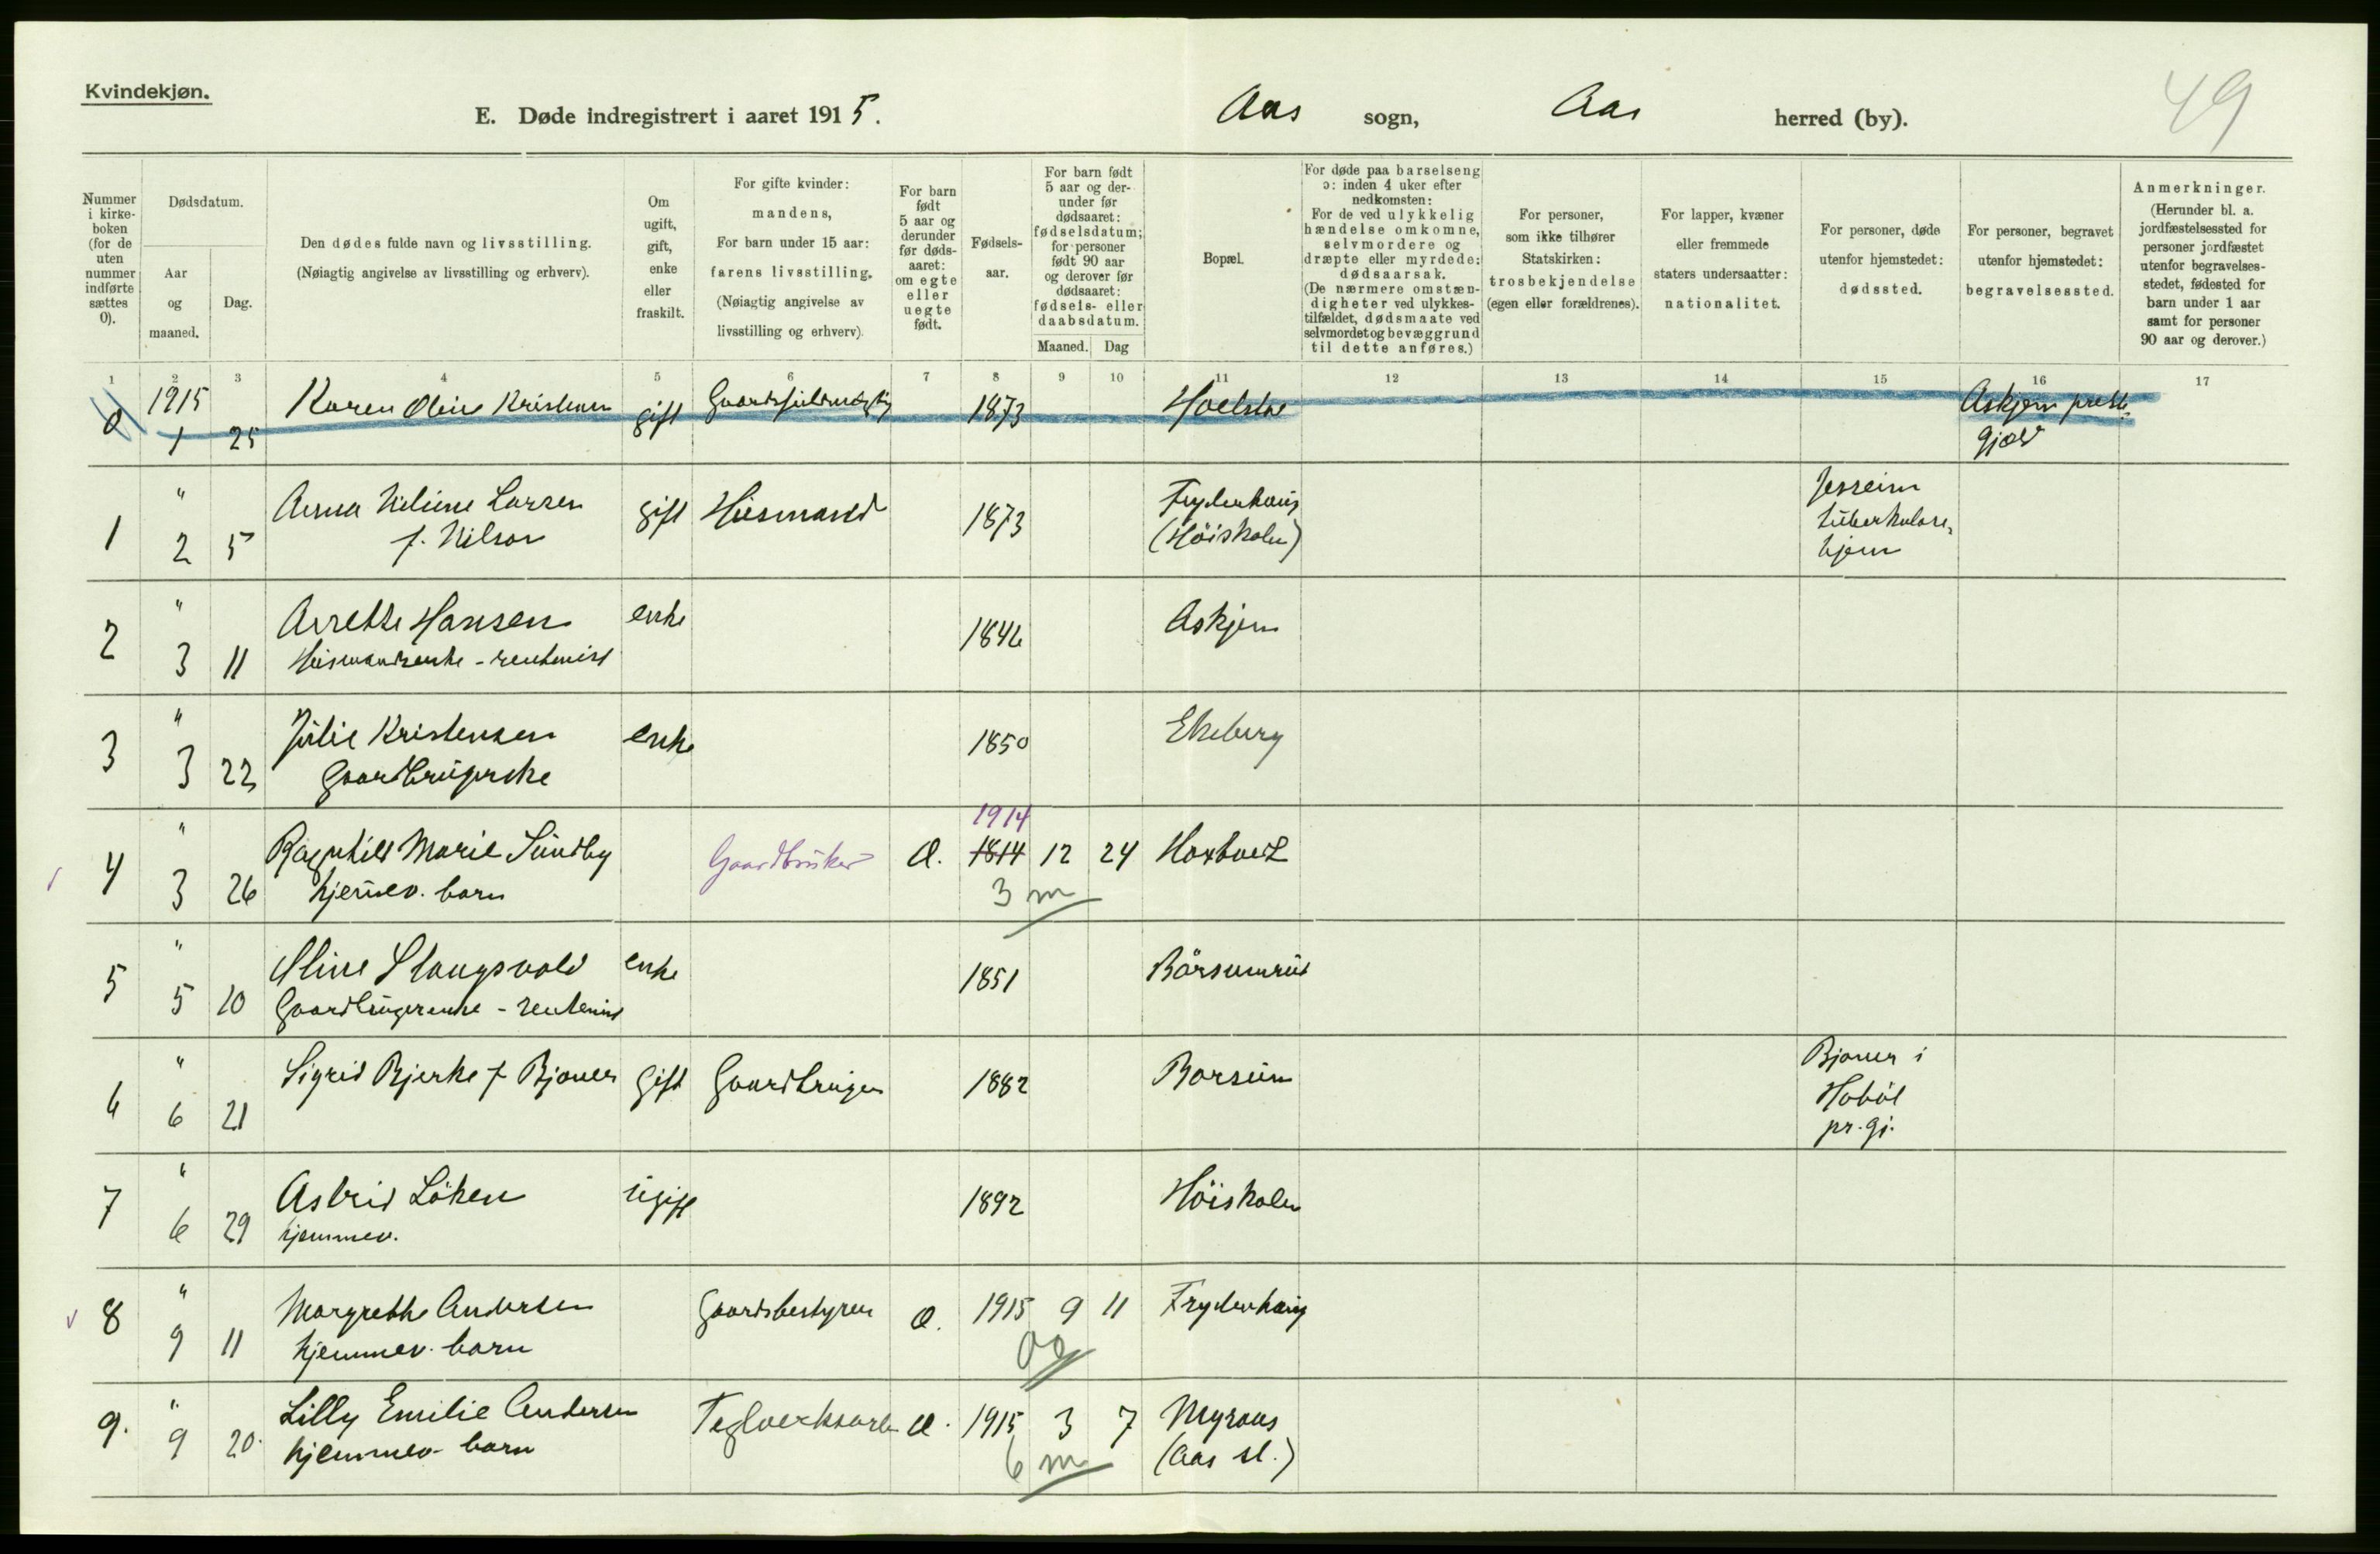 Kvindekjøn.
E. Døde indregistrert i aaret 1915. Aas sogn, Aas herred (by).
49
Nummer
i kirke-
boken
(for de
uten
nummer
indførte
sættes
0).
Dødsdatum.
Aar
og
maaned.
Dag.
Den dødes fulde navn og livsstilling.
(Nøiagtig angivelse av livsstilling og erhverv).
Om
ugift,
gift,
enke
eller
fraskilt.
For gifte kvinder:
mandens,
For barn under 15 aar:
farens livsstilling.
(Nøiagtig angivelse av
livsstilling og erhverv).
For barn
født
5 aar og
derunder
før døds-
aaret:
om egte
eller
uegte
født.
Fødsels-
aar.
For barn født
5 aar og der-
under før
dødsaaret:
fødselsdatum;
for personer
født 90 aar
og derover før
dødsaaret:
fødsels- eller
daabsdatum.
Maaned. Dag
Bopæl.
For døde paa barselseng
ɔ: inden 4 uker efter
nedkomsten:
For de ved ulykkelig
hændelse omkomne,
selvmordere og
dræpte eller myrdede:
dødsaarsak.
(De nærmere omstæn-
digheter ved ulykkes-
tilfældet, dødsmaate ved
selvmordet og bevæggrund
til dette anføres.)
For personer,
som ikke tilhører
Statskirken:
trosbekjendelse
(egen eller forældrenes).
For lapper, kvæner
eller fremmede
staters undersaatter:
nationalitet.
For personer, døde
utenfor hjemstedet:
dødssted.
For personer, begravet
utenfor hjemstedet:
begravelsessted.
Anmerkninger.
(Herunder bl. a.
jordfæstelsessted for
personer jordfæstet
utenfor begravelses-
stedet, fødested for
barn under 1 aar
samt for personer
90 aar og derover.)
1 2 3 4 5 6 7 8 9 10 11 12 13 14 15 16 17
1915 Karen Oline Kristensen
0 1 25 gift 1873 Askjem preste-
gjæld
" Anna Nilsine Larsen gift Husmand 1873 Frydenhaug Jesseim
1 2 5 f. Nilson (Höiskolen) tuberkulose-
hjem
" Anette Hansen enke 1846 Askjem
2 3 11 Husmandsenke - rentenist
" Julie Kristensen enke 1850 Ekeberg
3 3 22 Gaardbrugerske
1914
" Ragnhild Marie Sundby Gaardbruker Æ. 1814 12 24
4 3 26 hjemmev. barn 3 m
" Stangsvold enke 1851 Börsumrud
5 5 10 Gaardbrugerenke - rentenist
" Sigrid Bjerke f Bjoner gift Gaardbruger 1882 Borsum Bjoner i
6 6 21 Hoböl
pr.gj.
" Astrid Löken ugift 1892 Höiskolen
7 6 29 hjemmev.
" Margrethe Andersen Gaardsbestyrer Æ. 1915 9 11 Frydenhaug
8 9 11 hjemmev. barn 0 g
" Lilly Emilie Andersen Teglverksarb. Æ. 1915 3 7 Myraas
9. 9 20. hjemmev. barn 6 m (Aas st.)